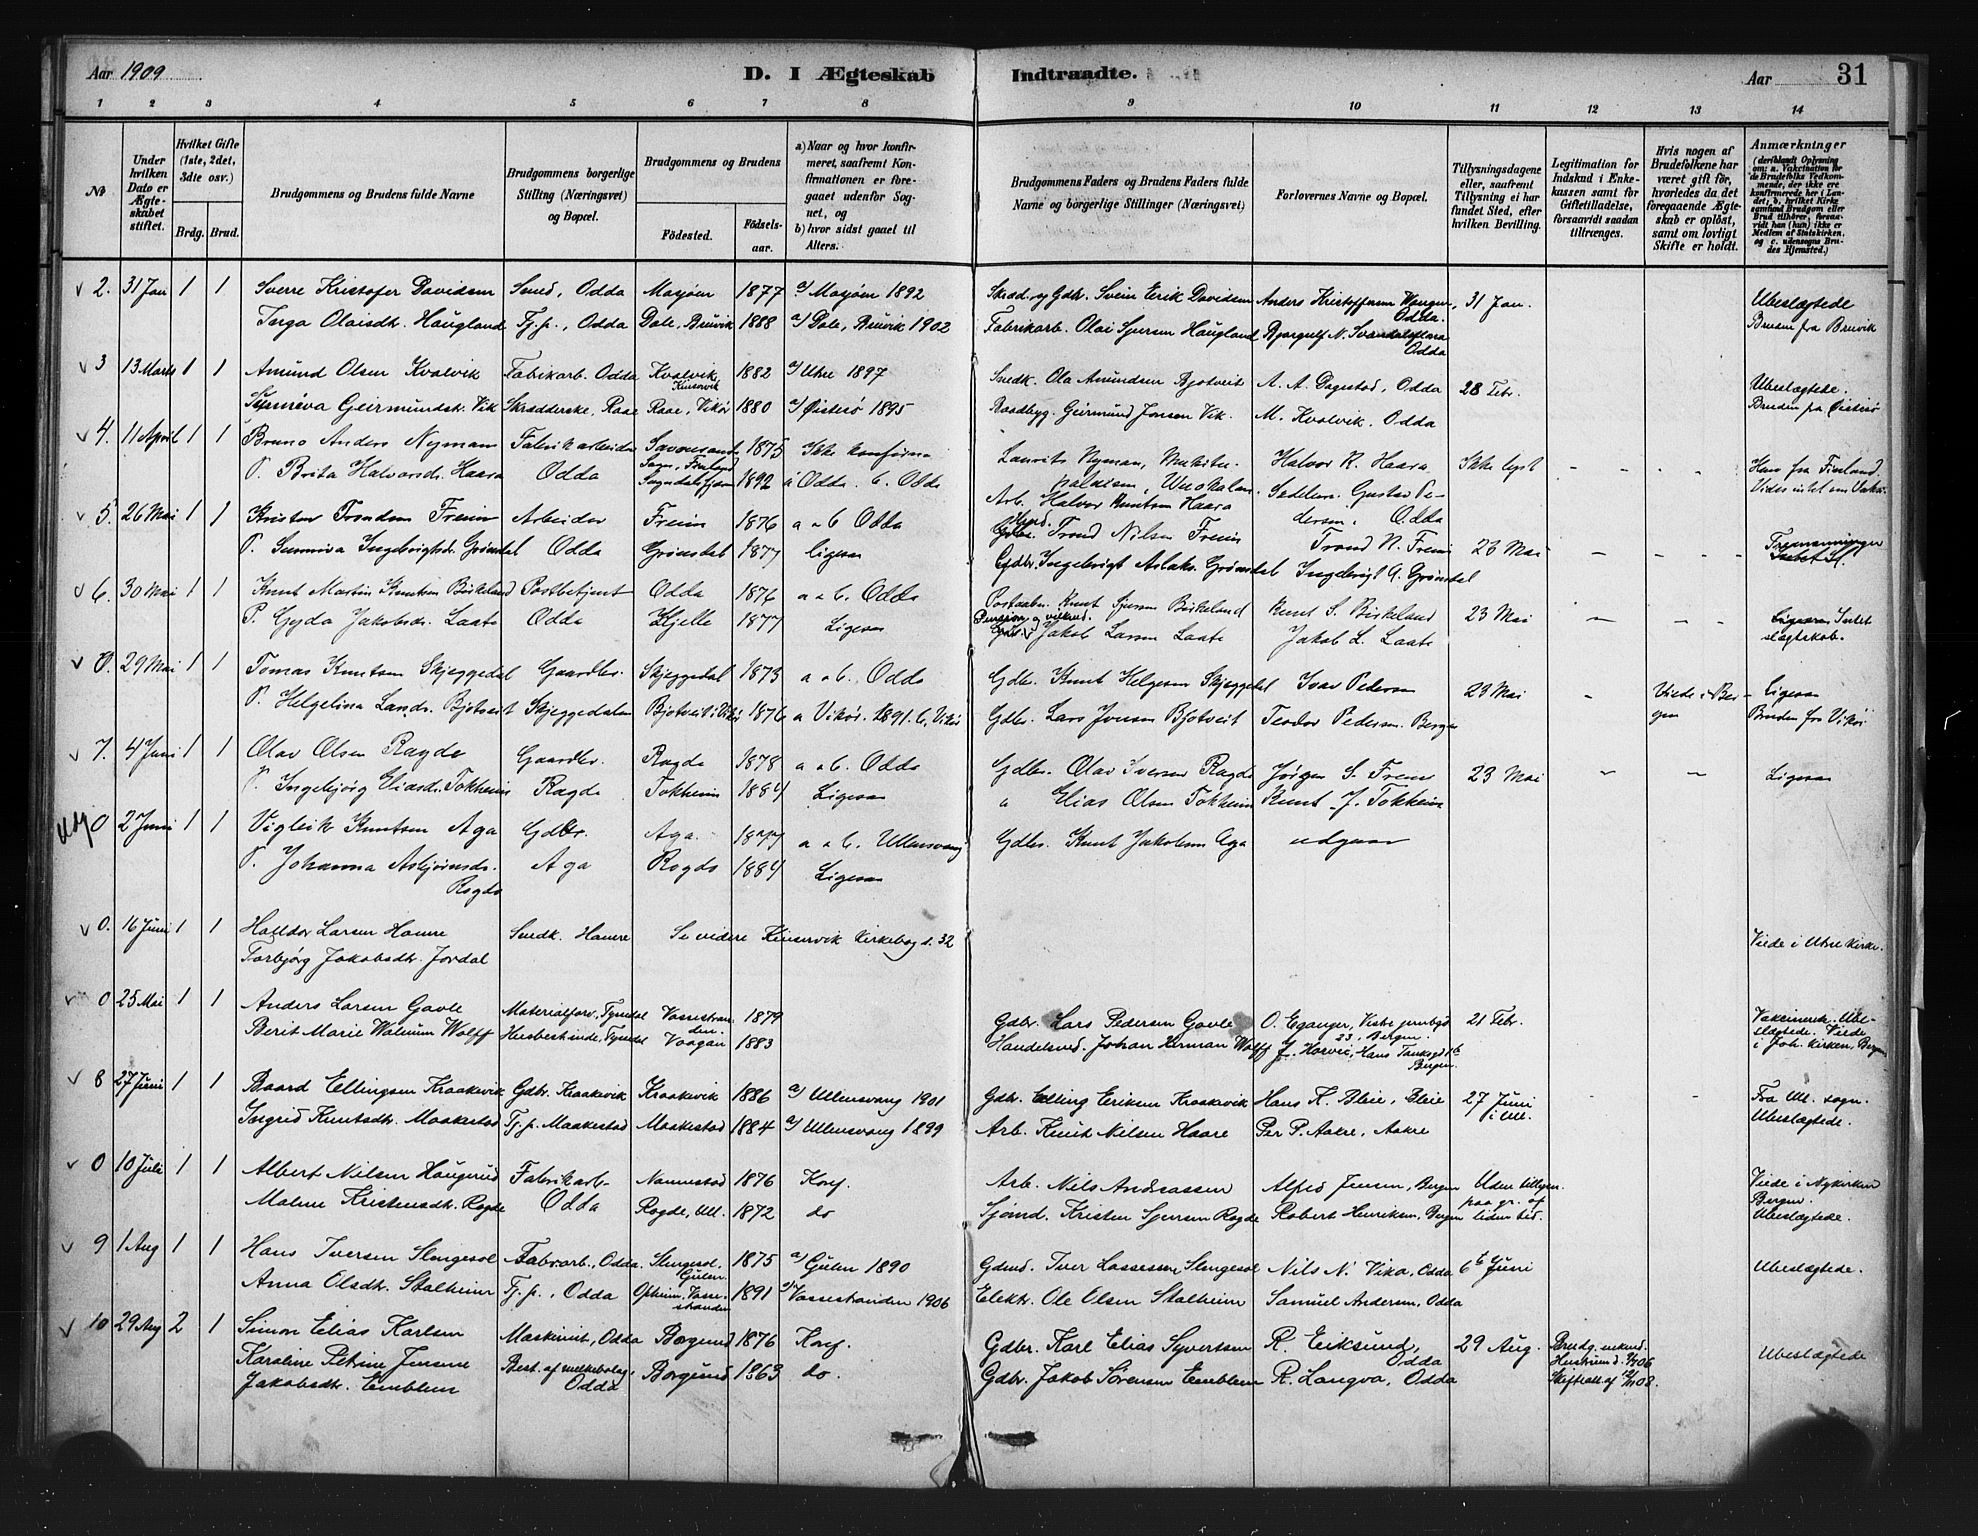 Aar 1909
D. I Ægteskab
Indtraadte.
Aar
31
1 2 3 4 5 6 7 8 9 10 11 12 13 14
No
Under hvilken Dato er Ægteskabet stiftet.
Hvilket Gifte (1ste, 2det, 3die osv.)
Brdg. Brud.
Brudgommens og Brudens fulde Navne
Brudgommens borgerlige Stilling (Næringsvei) og Bopæl.
Brudgommens og Brudens
Fødested. Fødselsaar.
a) Naar og hvor konfirmeret, saafremt Konfirmationen er foregaaet udenfor Sognet, og
b) hvor sidst gaaet til Alters.
Brudgommens Faders og Brudens Faders fulde Navne og borgerlige Stillinger (Næringsvei)
Forlovernes Navne og Bopæl.
Tillysningsdagene eller, saafremt Tillysning ei har fundet Sted, efter hvilken Bevilling.
Legitimation for Indskud i Enkekassen samt for Giftetilladelse, forsaavidt saadan tiltrænges.
Hvis nogen af Brudefolkene har været gift før, hvorledes da det foregaaende Ægteskab er opløst, samt om lovligt Skifte er holdt.
Anmærkninger
(deriblandt Oplysning om: a. Vakcination for de Brudefolks Vedkommende, der ikke ere konfirmerede her i Landet, b. hvilket Kirkesamfund Brudgom eller Brud tilhører, forsaavidt han (hun) ikke er Medlem af Statskirken, og c. udensogns Brudes Hjemsted.)
2. 31 Jan 1 1 Sverre Kristofer Davidsen Smed, Odda Mosjøen 1877 a) Mosjøen 1892 Skræd. og Gdbr. Svein Erik Davidsen Anders Kristoffersen Wangen, Odda. 31 Jan. Ubeslægtede
Inga Olaisdt. Haugland Tj.p., Odda Dale, Bruvik 1888 a) Dale, Bruvik 1902 Fabrikarb. Olai Sjursen Haugland Bjørgulf N. Odda Bruden fra Bruvik
3 13 Marts 1 1 Amund Olsen Kvalvik Fabrikarb. Odda Kvalvik, Kinservik 1882 a) Utne 1897 Snedk. Ola Amundsen Bjotveit A. A. Dagestad, Odda 28 Febr. Ubeslægtede.
Synneva Geirmundsdt. Vik Skrædderske, Raae Raae, Vikør 1880 a) Øistesø 1895 Raadbyg. Geirmund Jonsen Vik. M. Kvalvik, Odda Bruden fra Øistesø
4. 11 April 1 1 Bruno Anders Nyman Fabrikarbeider Sogn, Finland 1875 Ikke konfirm. Laurits Nyman, Halvor K. Haara Ikke lyst Han fra Finland.
P. Brita Halvorsd. Haara Odda 1892 a Odda. b. Odda Arb. Halvor Knutsen Haara Gustav Pedersen. Odda Vides intet om
5. 26 Mai 1 1 Kristen Trondsen Freim Arbeider Freim 1876 a o b Odda Gdbr. Trond Nilsen Freim Trond N. Freim 23 Mai
P. Sunniva Ingebrigtsd. Grønsdal Odda Grønsdal 1877 ligesaa Gdbr. Ingebrigt Aslaks. Grønsdal Ingebrigt A. Grønsdal
6. 30 Mai 1 1 Knut Martin Knutsen Birkeland Postbetjent Odda 1876 a o b. Odda Postaabn. Knut Sjursen Birkeland Knut S. Birkeland 23 Mai
P. Gyda Jakobsd. Laate Odda Hjelle 1877 Ligesaa Jakob Larsen Laate Jakob L. Laate Intet slægtskab.
0. 29 Mai 1 1 Tomas Knutsen Skjeggedal Gaardbr. Skjeggedal 1873 a o b. Odda Gdbr. Knut Helgesen Skjeggedal Ivar Pedersen 23 Mai Viede i Bergen Ligesaa
P. Helgelina Larsd. Bjotveit Skjeggedalen Bjotveit i Vikør 1876 a Vikør. 1891. b, Vikør Gdbr. Lars Jonsen Bjotveit Teodor Pedersen. Bergen Bruden fra Vikør
7. 4 Juni 1 1 Olav Olsen Ragde Gaardbr. Ragde 1878 a o b. Odda Gdbr. Olav Iversen Ragde Jørgen S. Freim 23 Mai Ligesaa
P. Ingebjørg Eliasd. Tokheim Ragde Tokheim 1884 Ligesaa " Elias Olsen Tokheim Knut J. Tokheim
0 2 Juni 1 1 Vigleik Knutsen Aga Gdbr. Aga. 1877 a o b. Ullensvang Gdbr. Knut Jakobsen Aga udgaar
P. Johanna Asbjørnsd. Ragde Aga Ragde 1884 Ligesaa
0. 16 Juni 1 1 Halldor Larsen Hamre Snedk. Hamre Se videre Kinservik Kirkebog s. 32 Viede i Utne Kirke.
Torbjørg Jakobsdt. Jordal
0 25 Mai 1 1 Anders Larsen Gavle Materialforv., Tyssedal Vossestranden. 1879 Gdbr. Lars Pedersen Gavle O. Eganger, Vestre 23, Bergen. 21 Febr. Vakcinerk. Ubeslægtede. Viede i Joh. kirken, Bergen.
Berit Marie Walnum Wolff Husbestinde, Tyssedal Vaagan 1883 Handelsred. Johan Herman Wolff J. Horvei, Hans Bergen.
8 27 Juni 1 1 Baard Ellingsen Kraakevik Gdbr. Kraakevik Kraakevik 1886 a) Ullensvang 1901 Gdbr. Elling Eriksen Kraakevik Hans K. Bleie, Bleie 27 Juni i Ull. Fra Ull. sogn.
Ingrid Knutsdt. Maakestad Tj.p. Maakestad Maakestad 1884 a) Ullensvang 1899 Arb. Knut Nilsen Haare Per P. Aakre, Aakre Ubeslægtede.
0 10 Juli 1 1 Albert Nilsen Haugerud Fabrikarb. Odda Nannestad 1876 Konf. Arb. Nils Andreassen Alfred Jensen, Bergen Uden tillysn. paa gr. af tiden tid. Viede i Nykirken Bergen.
Malene Kristensdt. Ragde Ragde, Ull. 1872 do Sjømd. Kristen Sjursen Ragde Robert Henriksen, Bergen Ubeslægtede.
9 1 Aug 1 1 Hans Iversen Slengesol Fabr.arb., Odda. Slengesol, Gulen 1875 a) Gulen 1890 Gdmd. Iver Lassesen Slengesol Nils N. Vika, Odda 6te Juni Ubeslægtede.
Anna Olsdt. Stalheim Tj.p., Odda Opheim, Vossestranden 1891 a) Vossestranden 1906 Elektr. Ole Olsen Stalheim Samuel Andersen, Odda
10 29 Aug 2 1 Simon Elias Karlsen Maskinist, Odda Borgund 1876 Konf. Gdbr. Karl Elias Syvertsen R. Eiksund, Odda 29 Aug. Hustru d. 06
Karoline Petrine Jensine Jakobsdt. Emblem Best. af melkebolag, Odda Borgund 1863 do. Gdbr. Jakob Sørensen Emblem R. Langva, Odda Skifteatt. af 08. Ubeslægtede